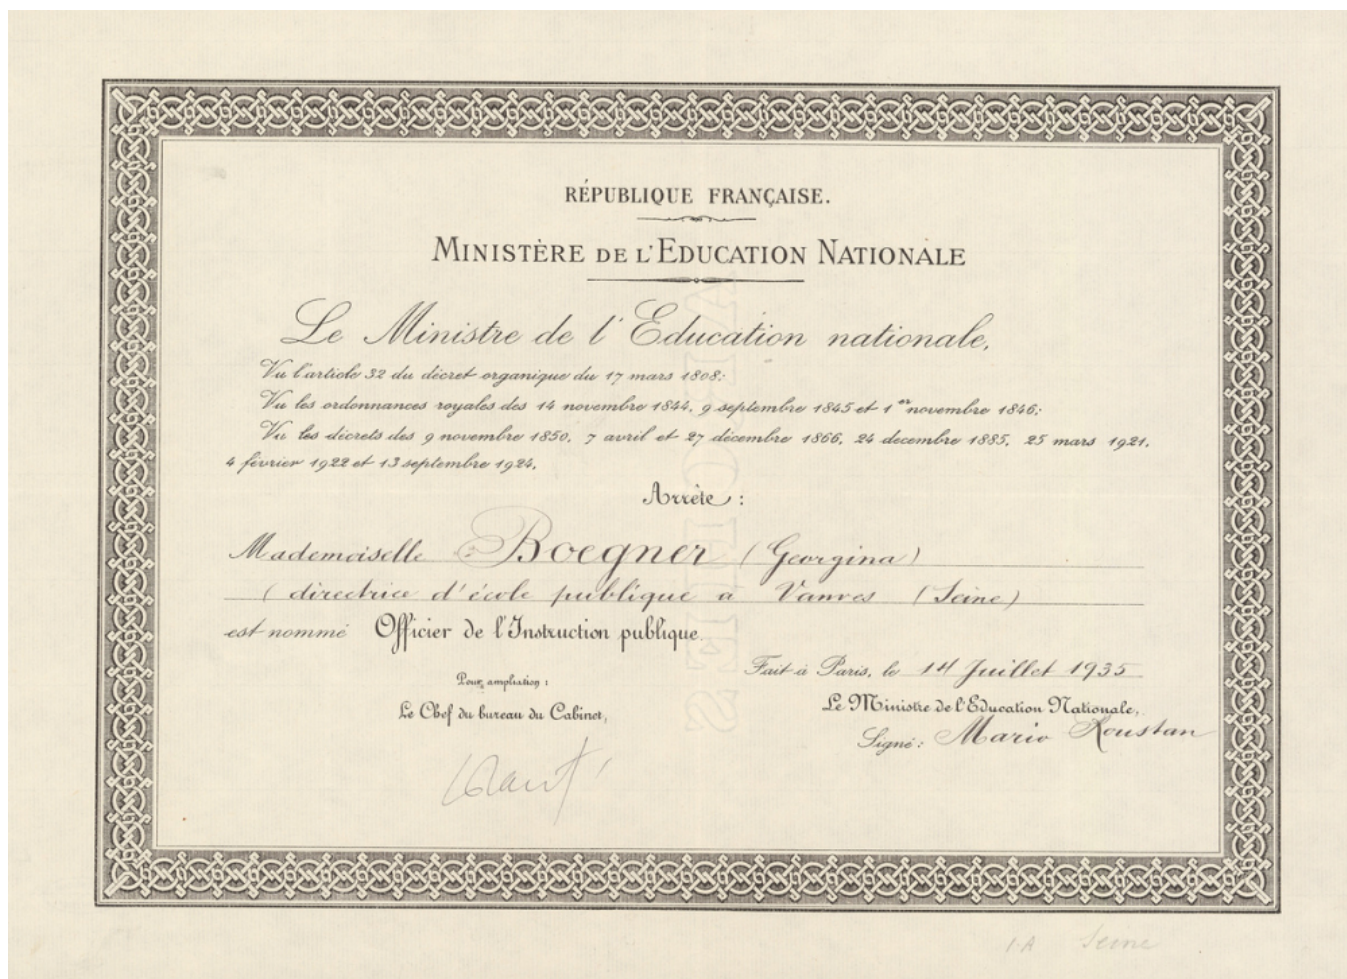 RÉPUBLIQUE FRANÇAISE.
MINISTÈRE DE L'EDUCATION NATIONALE
Le Ministre de l'Education nationale,
Vu l'article 32 du décret organique du 17 mars 1808;
Vu les ordonnances royales des 14 novembre 1844, 9 septembre 1845 et 1er novembre 1846;
Vu les décrets des 9 novembre 1850, 7 avril et 27 décembre 1866, 24 decembre 1885, 25 mars 1921,
4 février 1922 et 13 septembre 1924,
Arrête :
Mademoiselle Boegner (Georgina)
(directrice d'école publique à Vanves (Seine)
est nommé Officier de l'Instruction publique.
Fait à Paris, le 14 Juillet 1935
Pour ampliation :
Le Chef du bureau du Cabinet,
Le Ministre de l'Education Nationale,
Signé : Mario Roustan
I-A Seine